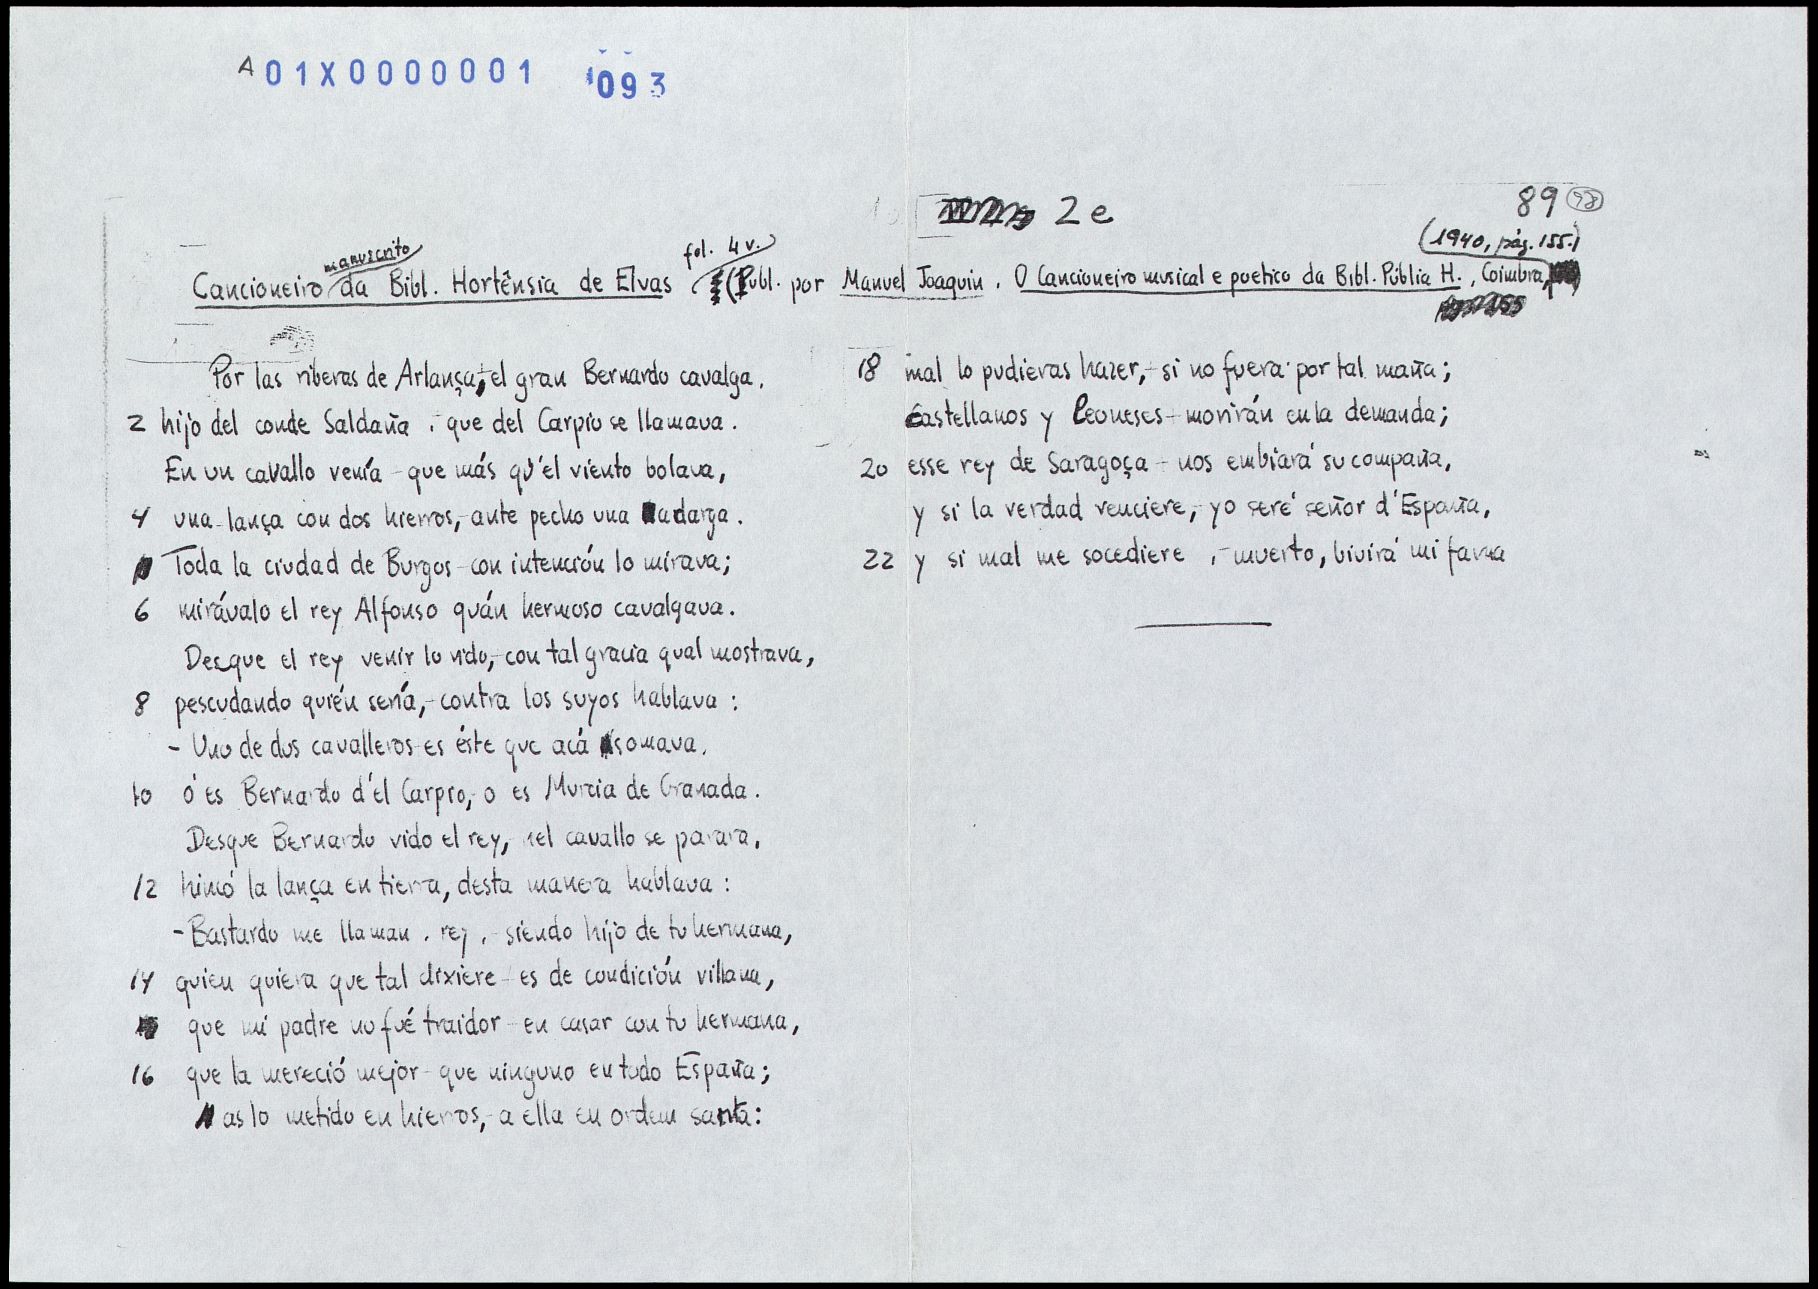 A 01X0000001 093
2e
89 98
manuscrito fol. 4 v. (1940, pág. 155.)
Cancioneiro da Bibl. Hortênsia de Elvas (Publ. por Manuel Joaquin. O Cancioneiro musical e poetico da Bibl. Públia H., Coimbra,
Por las riberas de Arlança, el gran Bernardo cavalga,
2 hijo del conde Saldaña, - que del Carpio se llamava.
En un cavallo venía - que más qu'el viento bolava,
4 una lança con dos hierros, - ante pecho una adarga.
Toda la ciudad de Burgos - con intención lo mirava;
6 mirávalo el rey Alfonso quán hermoso cavalgava.
Desque el rey venir lo vido, - con tal gracia qual mostrava,
8 pescudando quién sería, - contra los suyos hablava:
- Uno de dos cavalleros - es éste que acá asomava,
10 ó es Bernardo d'el Carpio, - o es Murcia de Granada.
Desque Bernardo vido el rey, - el cavallo se parara,
12 hincó la lança en tierra, desta manera hablava:
- Bastardo me llaman, rey, - siendo hijo de tu hermana,
14 quien quiera que tal dixiere - es de condición villana,
que mi padre no fué traidor - en casar con tu hermana,
16 que la mereció mejor - que ninguno en todo España;
as lo metido en hierros, - a ella en ordem santa:
18 mal lo pudieras hazer, - si no fuera por tal maña;
Castellanos y Leoneses - morirán en la demanda;
20 esse rey de Saragoça - nos embiará su compaña,
y si la verdad venciere, - yo seré señor d'España,
22 y si mal me socediere, - muerto, bivirá mi fama